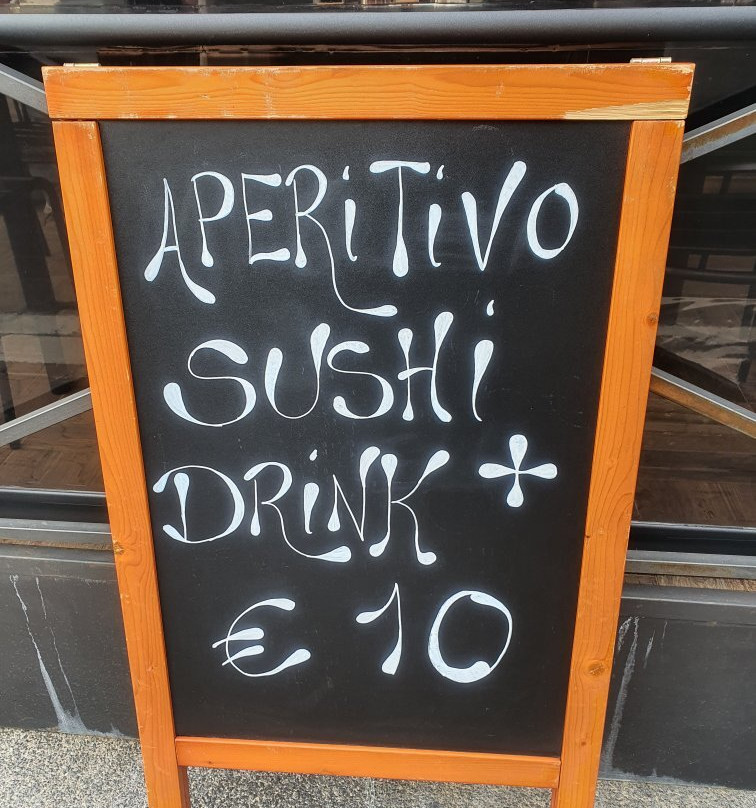 APERiTiVO
SUSHi
DRiNK +
€ 10